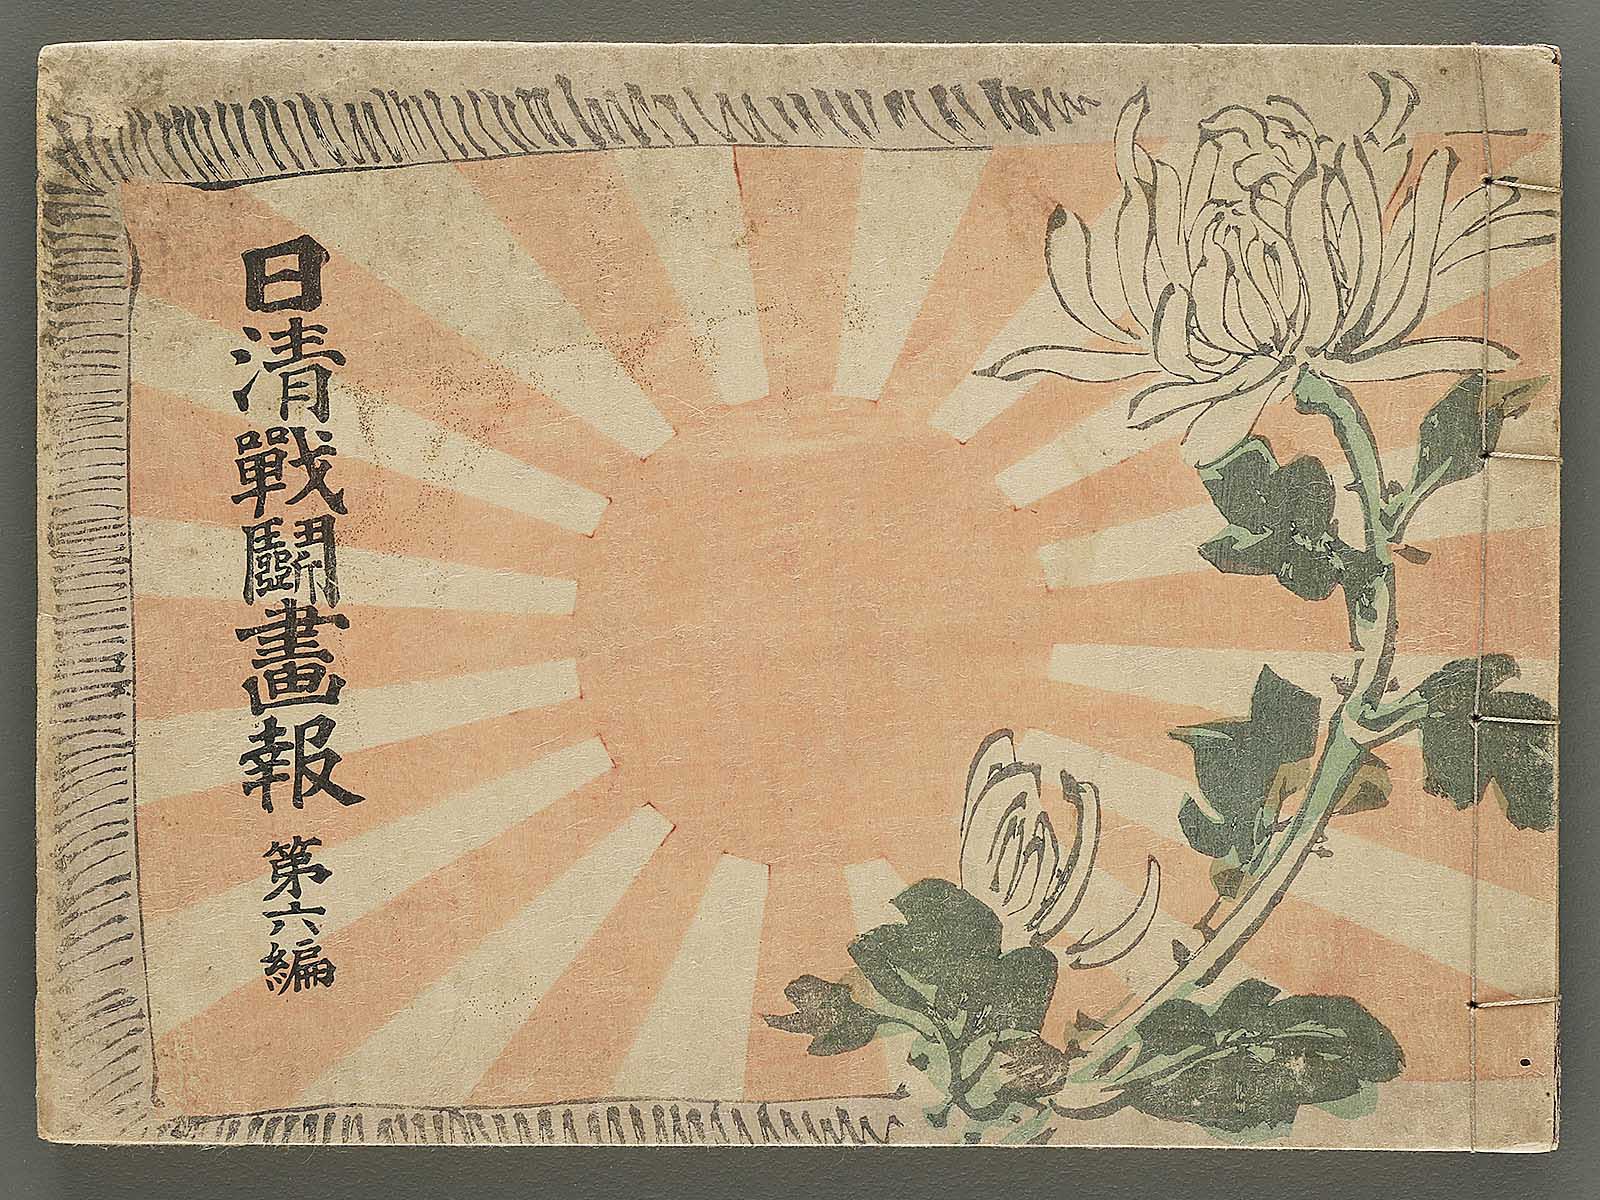 日清戰鬪畫報 第六編